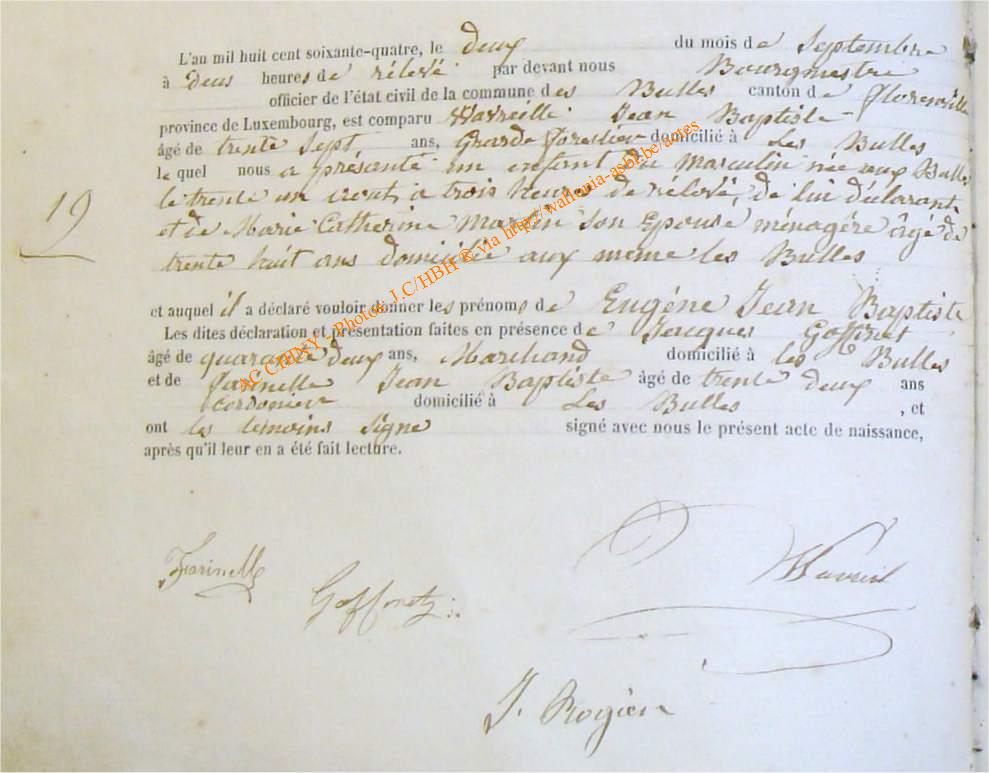 L'an mil huit cent soixante-quatre, le deux du mois de Septembre
à deus heures de rélevé par devant nous Bourgmestre
officier de l'état civil de la commune des Bulles canton de florenville
province de Luxembourg, est comparu Wavreille Jean Baptiste
âgé de trente Sept ans, Grarde forestier domicilié à Les Bulles
le quel nous a présanté un enfant du masculin née aux Bulles
le trente un à trois heures de relevé, de lui déclarant
19
et de Marie Catherine Martin Son Epouse ménagére âgé de
trente huit ans domiciliée aux meme les Bulles
et auquel il a déclaré vouloir donner les prénoms de Eugéne Jean Baptiste
Les dites déclaration et présentation faites en présence de Jacques Goffinet
âgé de quarante deux ans, Marchand domicilié à les Bulles
et de farinelle Jean Baptiste âgé de trente deux ans
cordonier domicilié à Les Bulles , et
ont les temoins Signe signé avec nous le présent acte de naissance,
après qu'il leur en a été fait lecture.
AC CHINY - Photos J.C/HBH ® via http://wallonia-asbl.be/actes
Farinelle
Goffinet
J. Rogier